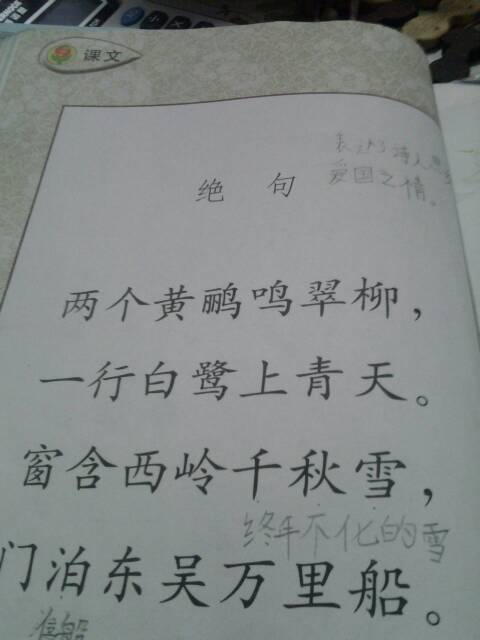 课文
表达了诗人思
爱国之情。
绝句
两个黄鹂鸣翠柳，
一行白鹭上青天。
窗含西岭千秋雪，
终年不化的雪
门泊东吴万里船。
船